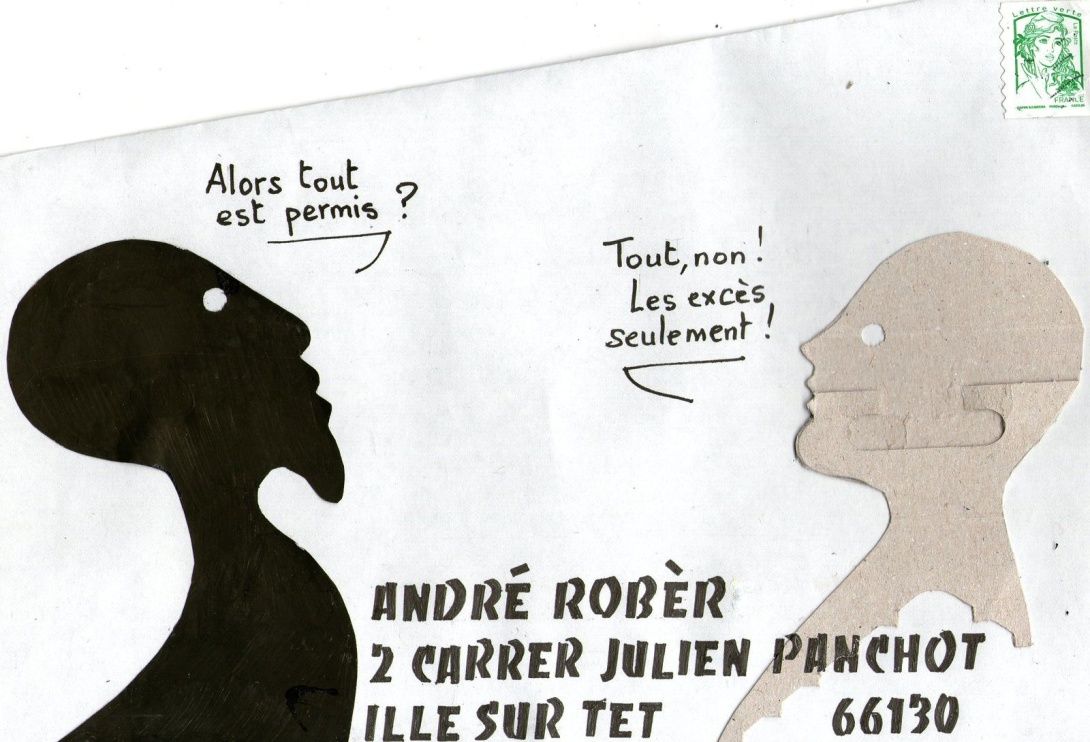 Lettre verte
La Poste
FRANCE
Alors tout
est permis ?
Tout, non !
Les excès,
seulement !
ANDRÉ ROBÈR
2 CARRER JULIEN PANCHOT
ILLE SUR TET 66130